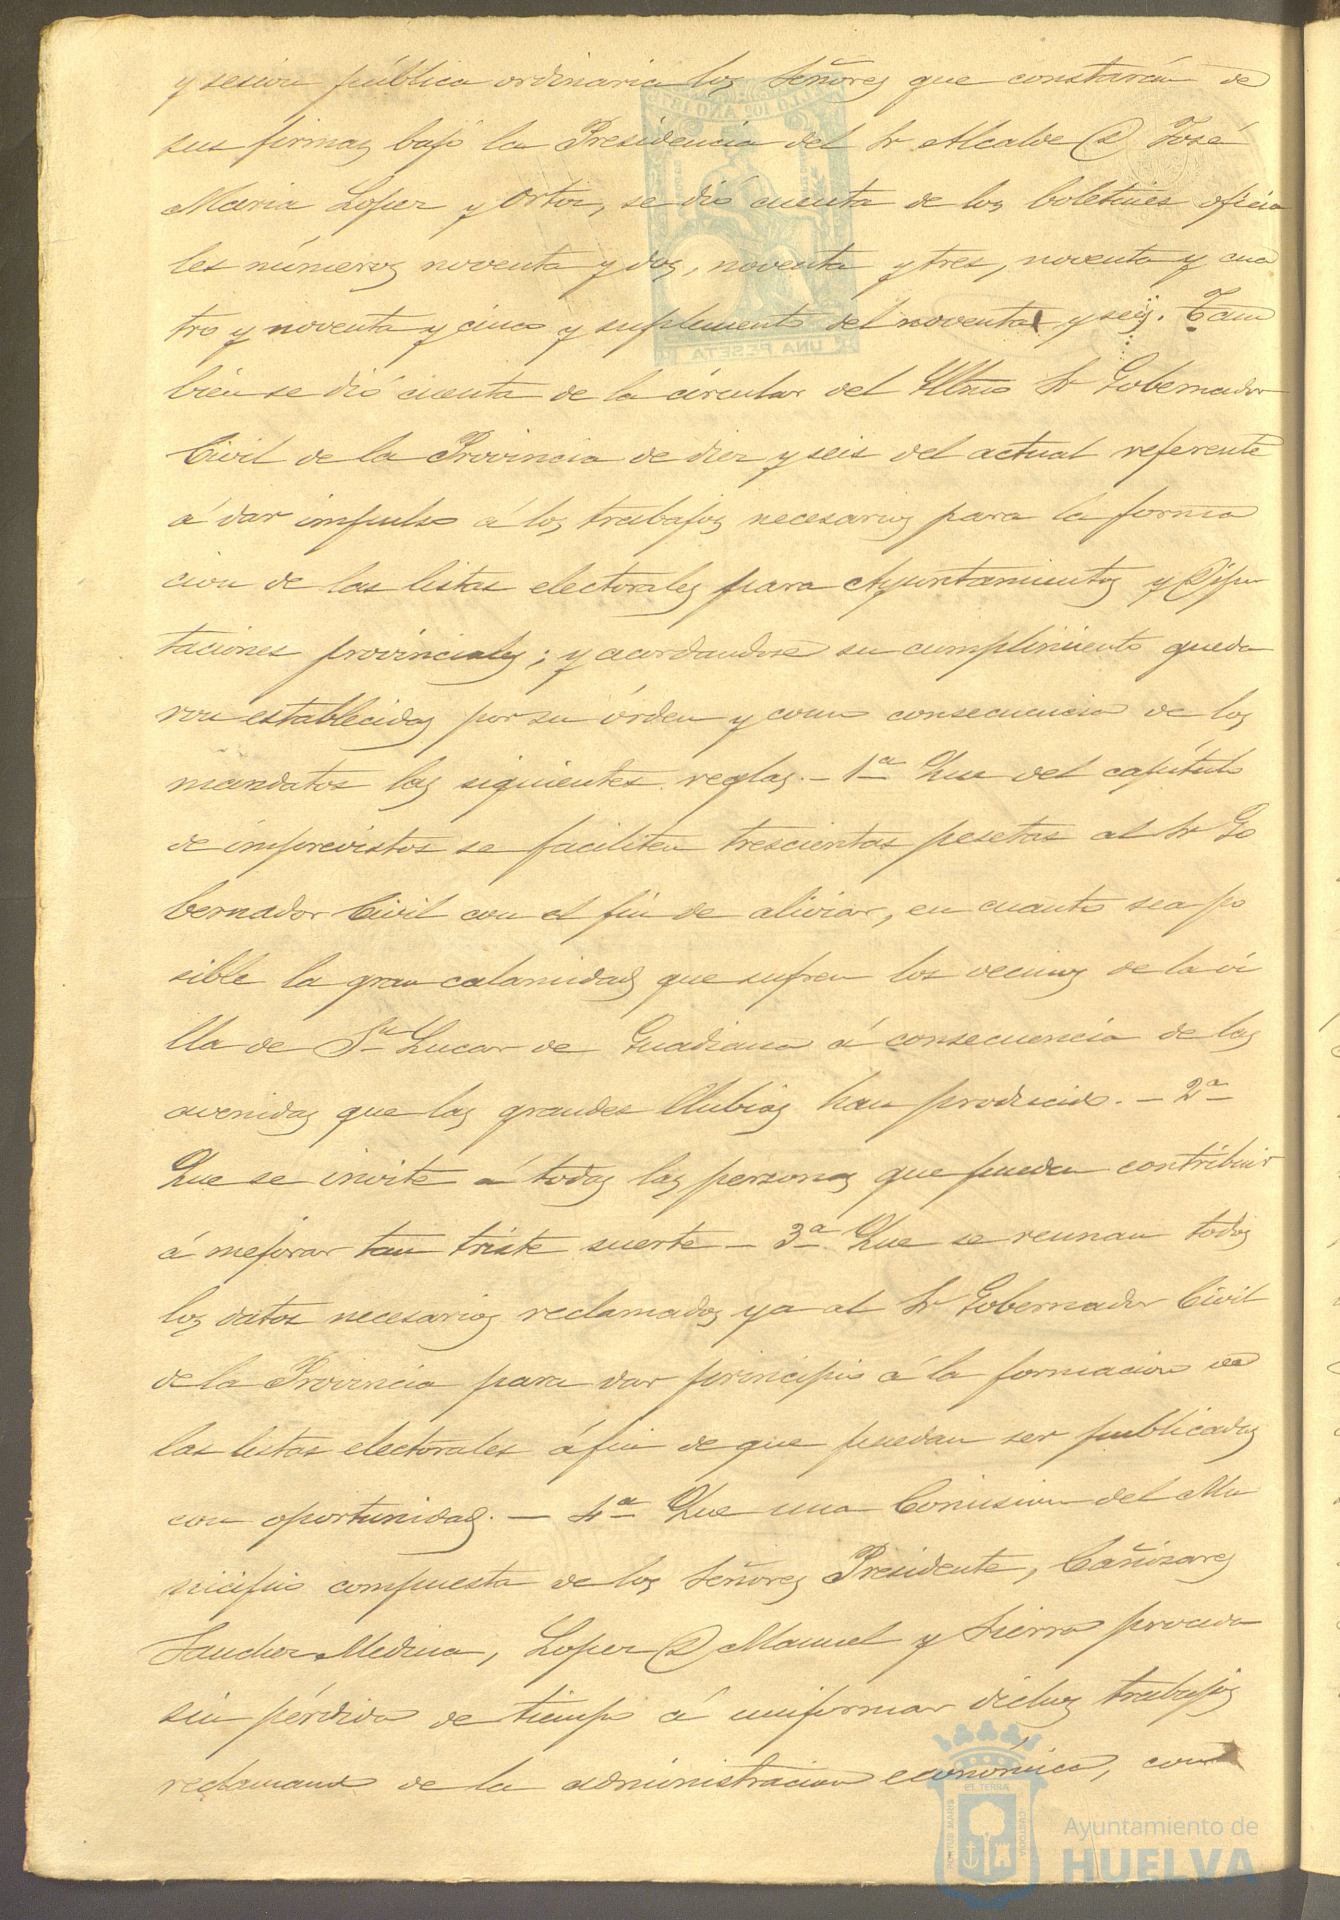 y sesion pública ordinaria los Señores que constarán de
sus firmas bajo la Presidencia del Sr Alcalde D José
Maria Lopez y Ortiz, se dió cuenta de los boletines oficia
les números noventa y dos, noventa y tres, noventa y cua
tro y noventa y cinco y suplemento del noventa y seis. Tam
bien se dió cuenta de la circular del Yltmo Sr Gobernador
Civil de la Provincia de diez y seis del actual referente
á dar impulso á los trabajos necesarios para la forma
cion de las listas electorales para Ayuntamientos y Dipu
taciones provinciales; y acordandose su cumplimiento queda
ron establecidas por su órden y como consecuencia de los
mandatos las siguientes reglas. - 1ª Que del capítulo
de imprevistos se faciliten trescientas pesetas al Sr Go
bernador Civil con el fin de aliviar, en cuanto sea po
sible la gran calamidad que sufren los vecinos de la vi
lla de Sn Lucar de Guadiana á consecuencia de las
avenidas que las grandes llubias han producido. - 2ª
Que se invite á todas las personas que puedan contribuir
á mejorar tan triste suerte - 3ª Que se reunan todos
los datos necesarios reclamados ya al Sr Gobernador Civil
de la Provincia para dar principio á la formacion de
las listas electorales á fin de que puedan ser publicadas
con oportunidad. - 4ª Que una Comision del Mu
nicipio compuesta de los Señores Presidente, Cañizares
Sanchez Medina, Lopez D Manuel y Sierra proceda
sin pérdida de tiempo á uniformar dichos trabajos
reclamando de la administracion económica, como
SELLO 10º AÑO 1875
UNA PESETA
PORTUS MARIS
ET TERRÆ
CUSTODIA
Ayuntamiento de
HUELVA